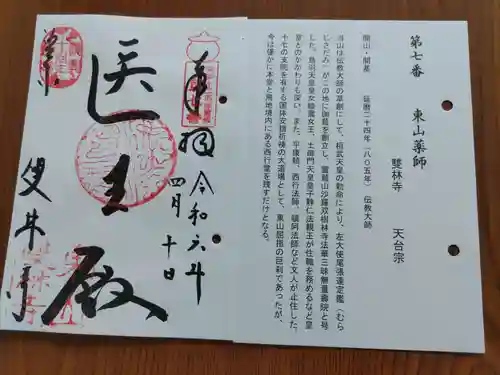 第七番 東山薬師
雙林寺 天台宗
開山・開基 延暦二十四年(八〇五年) 伝教大師
当山は伝教大師の草創にして、桓武天皇の勅命により、左大使尾張連定鑑(むら
じさだみ)がこの地に御葛を創立し、霊鷲山沙羅双樹林寺法華三昧無量壽院と号
した。鳥羽天皇皇女綾雲女王、土御門天皇皇子静仁法親王が住職を務めるなど皇
室とのかかわりも深い。また、平康頼、西行法師、頓阿法師など文人が止住した。
十七の支院を有する国体安穏祈祷の大道場として、東山屈指の巨刹であったが、
今は僅かに本堂と飛地境内にある西行堂を残すだけとなる。
奉拝
令和六年
四月十日
医王殿
雙林寺